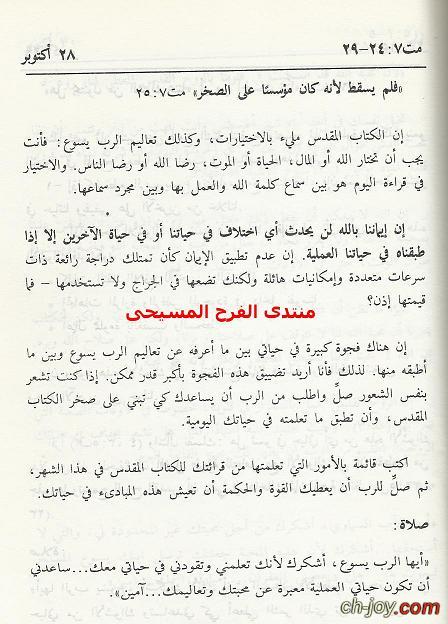 مت٧: ٢٤-٢٩
٢٨ أكتوبر
«فلم يسقط لأنه كان مؤسسًا على الصخر» مت٧: ٢٥
إن الكتاب المقدس مليء بالاختيارات، وكذلك تعاليم الرب يسوع: فأنت
يجب أن تختار الله أو المال، الحياة أو الموت، رضا الله أو رضا الناس. والاختيار
في قراءة اليوم هو بين سماع كلمة الله والعمل بها وبين مجرد سماعها.
إن إيماننا بالله لن يحدث أي اختلاف في حياتنا أو في حياة الآخرين إلا إذا
طبقناه في حياتنا العملية. إن عدم تطبيق الإيمان كأن تمتلك دراجة رائعة ذات
سرعات متعددة وإمكانيات هائلة ولكنك تضعها في الجراج ولا تستخدمها - فما
قيمتها إذن؟
منتدى الفرح المسيحى
إن هناك فجوة كبيرة في حياتي بين ما أعرفه عن تعاليم الرب يسوع وبين ما
أطبقه منها. لذلك فأنا أريد تضييق هذه الفجوة بأكبر قدر ممكن. إذا كنت تشعر
بنفس الشعور صلِّ واطلب من الرب أن يساعدك كي تبني على صخر الكتاب
المقدس، وأن تطبق ما تعلمته في حياتك اليومية.
اكتب قائمة بالأمور التي تعلمتها من قرائتك للكتاب المقدس في هذا الشهر،
ثم صلِّ للرب أن يعطيك القوة والحكمة أن تعيش هذه المبادىء في حياتك.
صلاة:
«أيها الرب يسوع، أشكرك لأنك تعلمني وتقودني في حياتي معك...ساعدني
أن تكون حياتي العملية معبرة عن محبتك وتعاليمك...آمين».
ch-joy.com